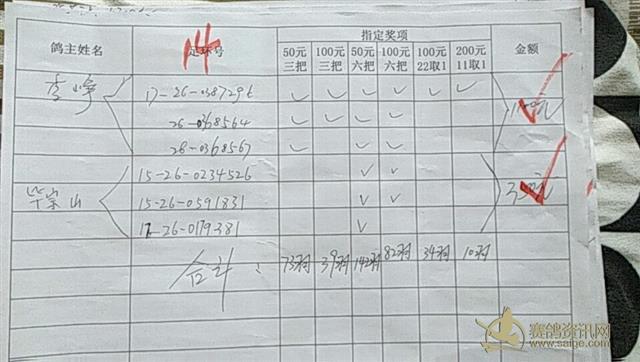 鸽主姓名 足环号 指定奖项 金额
14
50元三把 100元三把 50元六把 100元六把 100元22取1 200元11取1
17-26-0387296 ✓ ✓ ✓ ✓ ✓ ✓
26-0368564 ✓ ✓ ✓ ✓
28-0368567 ✓ ✓ ✓
15-26-0234526 ✓ ✓
毕宗山 15-26-0591831 ✓ ✓
17-26-0179381 ✓
合计: 73羽 39羽 142羽 82羽 34羽 10羽
赛鸽资讯网
www.saige.com